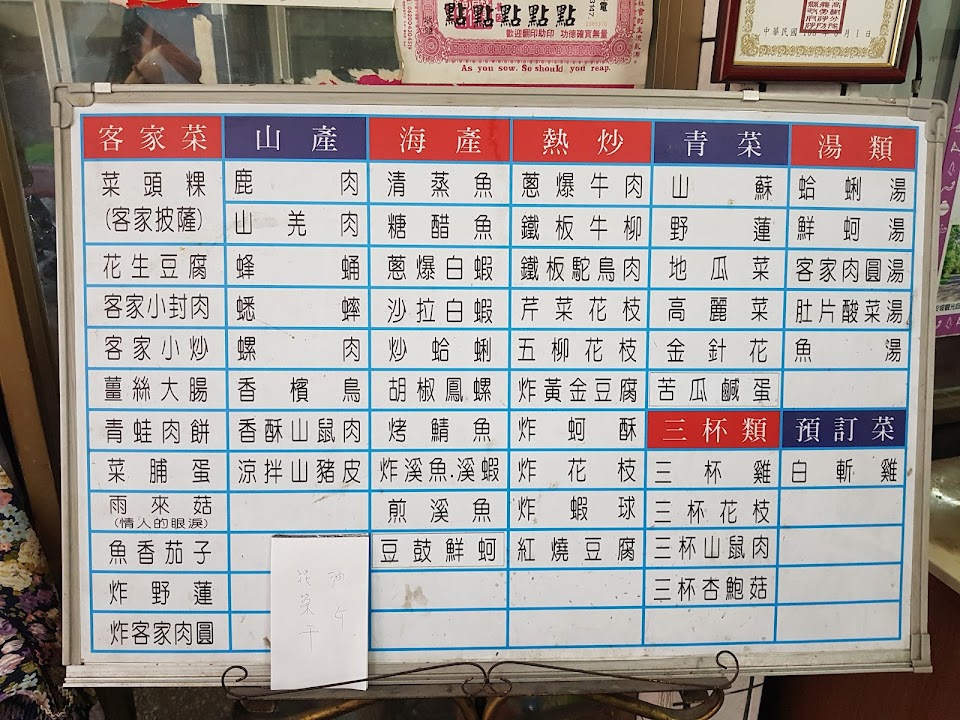 點點點點點
歡迎翻印助印 功德確實無量
As you sow. So should you reap.
客家菜
菜頭粿
(客家披薩)
花生豆腐
客家小封肉
客家小炒
薑絲大腸
青蛙肉餅
菜脯蛋
雨來菇
(情人的眼淚)
魚香茄子
炸野蓮
炸客家肉圓
山產
鹿肉
山羌肉
蜂蛹
蟋蟀
螺肉
香檳鳥
香酥山鼠肉
涼拌山豬皮
海產
清蒸魚
糖醋魚
蔥爆白蝦
沙拉白蝦
炒蛤蜊
胡椒鳳螺
烤鯖魚
炸溪魚.溪蝦
煎溪魚
豆鼓鮮蚵
熱炒
蔥爆牛肉
鐵板牛柳
鐵板駝鳥肉
芹菜花枝
五柳花枝
炸黃金豆腐
炸蚵酥
炸花枝
炸蝦球
紅燒豆腐
青菜
山蘇
野蓮
地瓜菜
高麗菜
金針花
苦瓜鹹蛋
三杯類
三杯雞
三杯花枝
三杯山鼠肉
三杯杏鮑菇
湯類
蛤蜊湯
鮮蚵湯
客家肉圓湯
肚片酸菜湯
魚湯
預訂菜
白斬雞